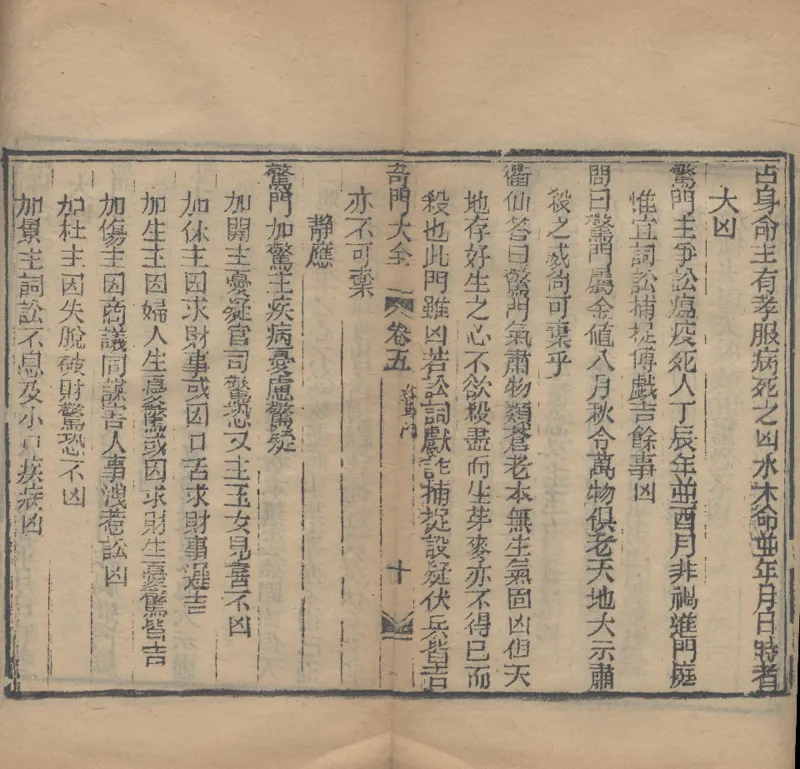 占身命主有孝服病死之凶水木命並年月日時者
大凶
驚門主爭訟瘟疫死人丁辰年並酉月非禍進門庭
惟宜詞訟捕捉博戲吉餘事凶
問曰驚門屬金值八月秋令萬物俱老天地大示肅
殺之威尙可棄乎
衢仙答曰驚門氣肅物類蒼老本無生氣固凶但天
地存好生之心不欲殺盡而生芽麥亦不得已而
殺也此門雖凶若訟詞獻詐捕捉設疑伏兵皆吉
奇門大全 卷五 驚門 十
亦不可棄
靜應
驚門加驚主疾病憂慮驚疑
加開主憂疑官司驚恐又主玉女見喜不凶
加休主因求財事或因口舌求財事遲吉
加生主因婦人生憂驚或因求財生憂驚皆吉
加傷主因商議同謀害人事洩惹訟凶
加杜主因失脫破財驚恐不凶
加景主詞訟不息及小口疾病凶